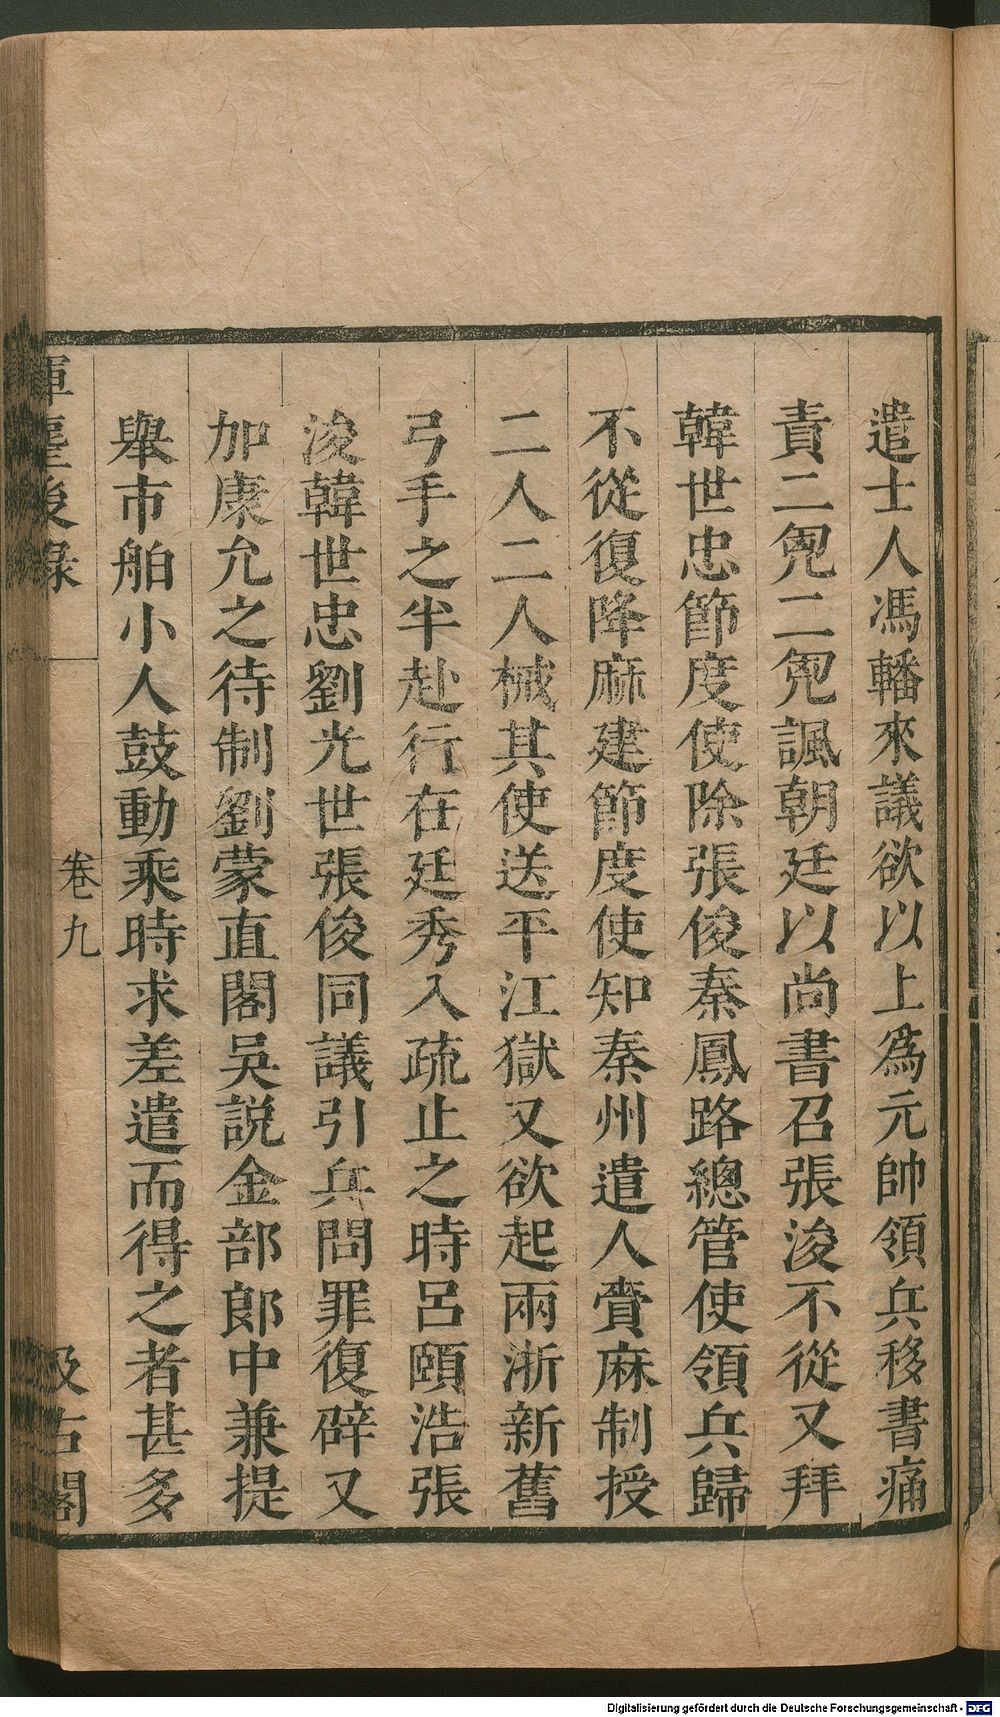 遣士人馮轓來議欲以上爲元帥領兵移書痛
責二兇二兇諷朝廷以尚書召張浚不從又拜
韓世忠節度使除張俊秦鳳路總管使領兵歸
不從復降麻建節度使知秦州遣人賫麻制授
二人二人械其使送平江獄又欲起兩浙新舊
弓手之半赴行在廷秀入疏止之時呂頤浩張
浚韓世忠劉光世張俊同議引兵問罪復辟又
加康允之待制劉蒙直閣吳說金部郎中兼提
舉市舶小人鼓動乘時求差遣而得之者甚多
揮麈後錄
卷九
汲古閣
Digitalisierung gefördert durch die Deutsche Forschungsgemeinschaft - DFG